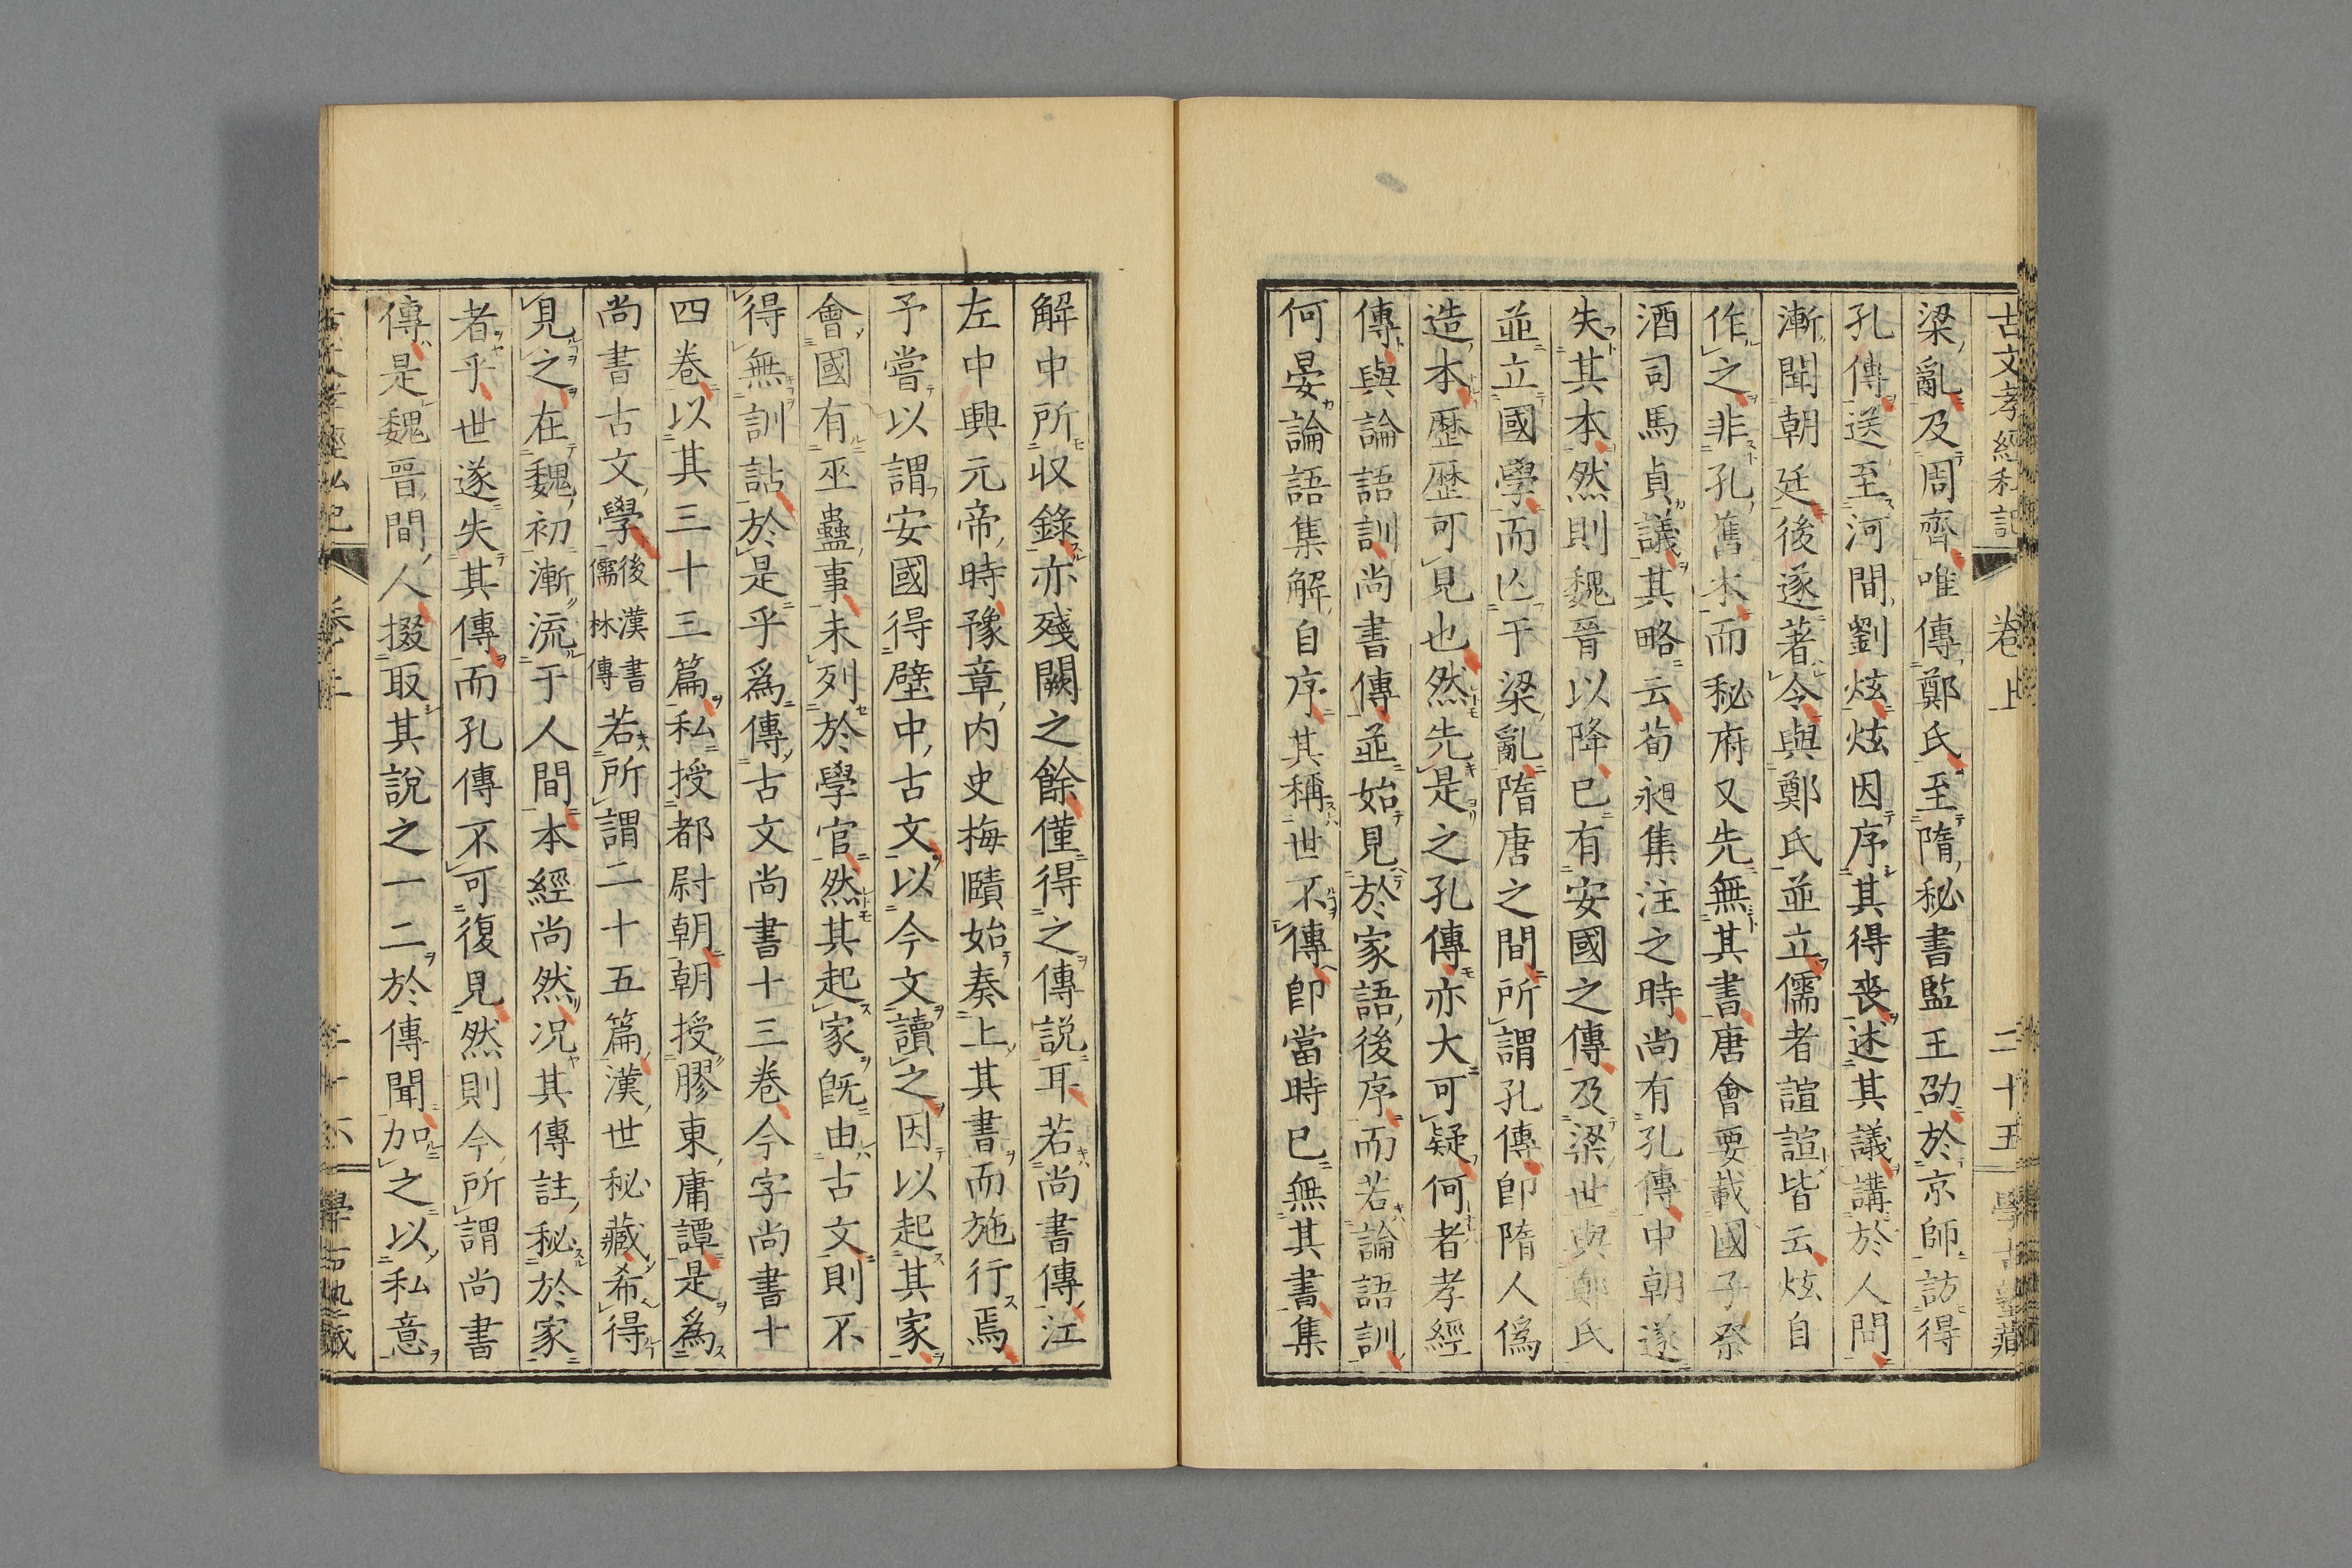 古文孝經私記 卷上 二十五 學古塾藏
梁亂及周齊唯傳鄭氏至隋秘書監王劭於京師訪得
孔傳送至河間劉炫炫因序其得喪述其議講於人間
漸聞朝廷後遂著令與鄭氏並立儒者諠諠皆云炫自
作之非孔舊本而秘府又先無其書唐會要載國子祭
酒司馬貞議其略云荀昶集注之時尚有孔傳中朝遂
失其本然則魏晉以降已有安國之傳及梁世與鄭氏
並立國學而亾于梁亂隋唐之間所謂孔傳卽隋人僞
造本歷歷可見也然先是之孔傳亦大可疑何者孝經
傳與論語訓尚書傳並始見於家語後序而若論語訓
何晏論語集解自序其稱世不傳卽當時已無其書集
解中所収錄亦殘闕之餘僅得之傳説耳若尚書傳江
左中興元帝時豫章内史梅賾始奏上其書而施行焉
予嘗以謂安國得壁中古文以今文讀之因以起其家
會國有巫蠱事未列於學官然其起家既由古文則不
得無訓詁於是乎爲傳古文尚書十三卷今字尚書十
四卷以其三十三篇私授都尉朝朝授膠東庸譚是爲
尚書古文學後漢書儒林傳若所謂二十五篇漢世秘藏希得
見之在魏初漸流于人間本經尚然况其傳註秘於家
者乎世遂失其傳而孔傳不可復見然則今所謂尚書
傳是魏晉間人掇取其說之一二於傳聞加之以私意
古文孝經私記 卷上 二十六 學古塾藏